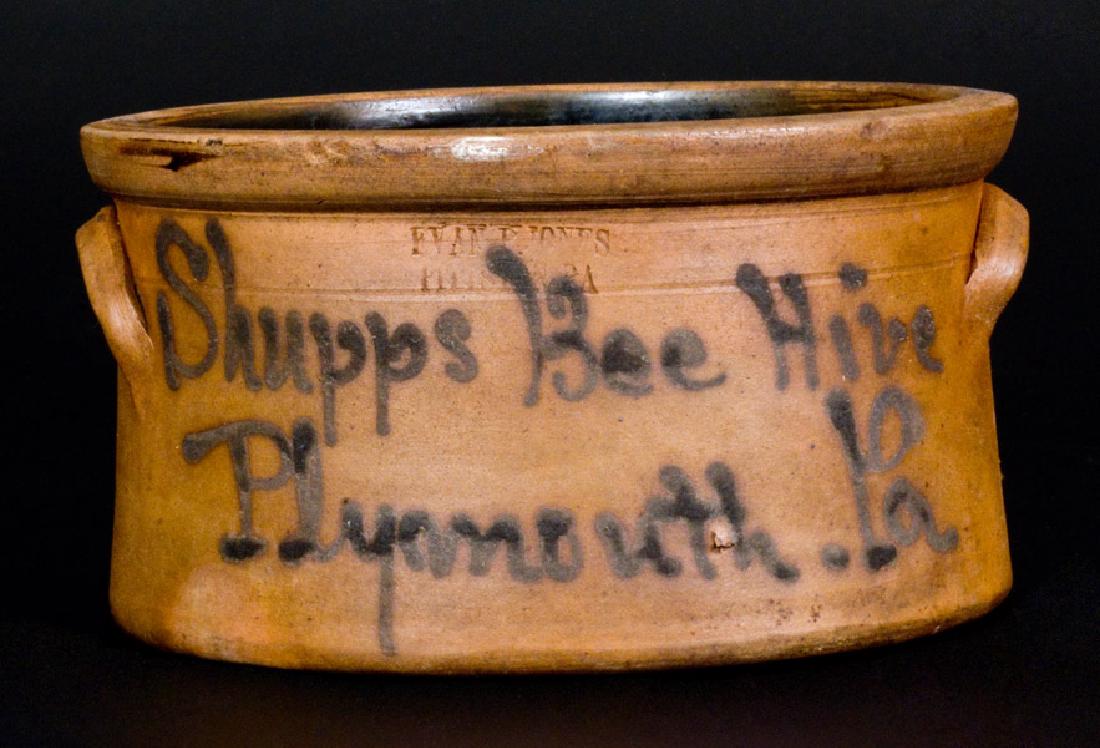 EVAN B JONES
PA
Shupps Bee Hive
Plymouth. Pa